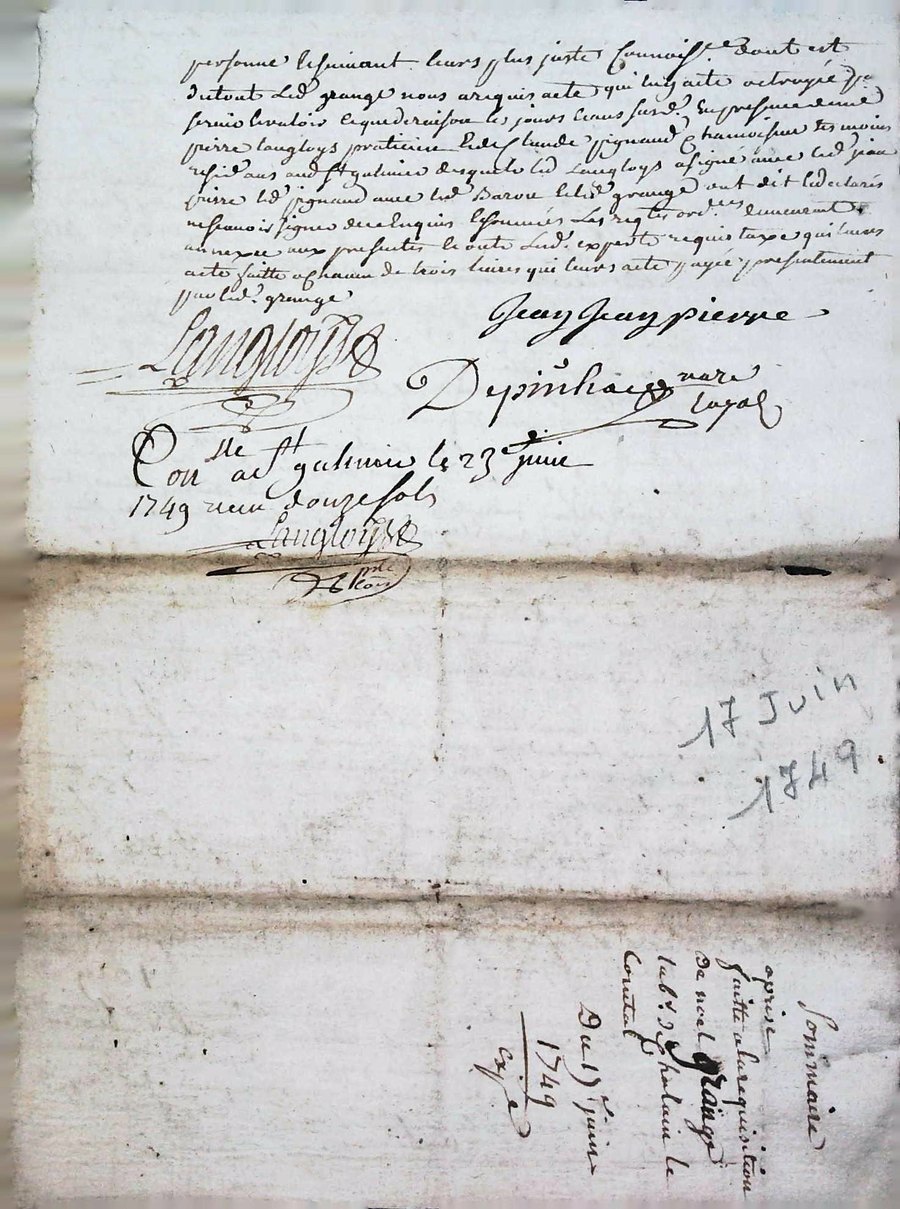 personne lesuivant leurs plus juste Connoisce dont et
dutout Led. grange nous arequis acte qui luy aeté octroyée p.
servir levaloir cequederaison les jours Et ans susd. En presence de me
pierre langloys praticien Et de Claude pignaud Chamoiseur tesmoins
residans aud St galmier desquels led Langloys asigné avec led jean
pierre led pignaud avec led Barou Et led grange ont dit Et declarés
nesavoir signer decelenquis Et sommés Les regles ord. demeurant
annexée aux presentes Et ont Led. experts requis taxe qui leurs
aeté faitte achacun de trois livres qui leurs aeté payée presentement
par led. grange
Langloys
Jean Jean pierre
Depinhac nore
royal
Conlle a St galmier le 23e juin
1749 recu douze sols
Langloys
17 Juin
1749
Sommaire
aprise
faitte alarequisition
de noel grange
lab. de Chalain le
Comtal
Du 17 juin
1749
Exp.e